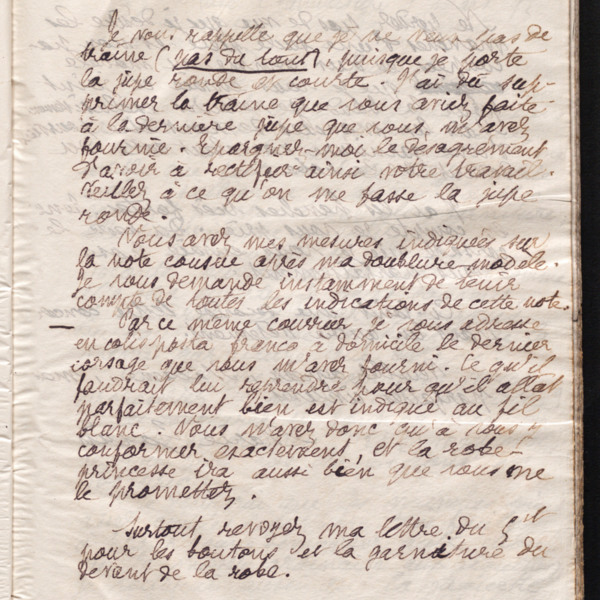 Je vous rappelle que je ne veux pas de
traîne (pas du tout), puisque je porte
la jupe ronde et courte. J'ai dû sup-
primer la traîne que vous aviez faite
à la dernière jupe que vous m'avez
fournie. Epargnez-moi le désagrément
d'avoir à rectifier ainsi votre travail.
Veillez à ce qu'on me fasse la jupe
ronde.
Vous avez mes mesures indiquées sur
la note cousue après ma doublure modèle.
Je vous demande instamment de tenir
compte de toutes les indications de cette note.
Par ce même courrier, je vous adresse
en colis postal franco à domicile le dernier
corsage que vous m'avez fourni. Ce qu'il
faudrait lui reprendre pour qu'il allât
parfaitement bien est indiqué au fil
blanc. Vous n'avez donc qu'à vous y
conformer exactement, et la robe-
princesse ira aussi bien que vous me
le promettez.
Surtout revoyez ma lettre du 5 ct
pour les boutons et la garniture du
devant de la robe.